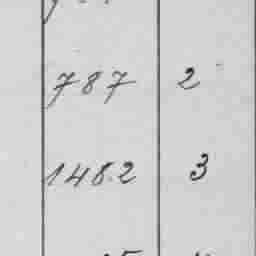 787 2
1482 3